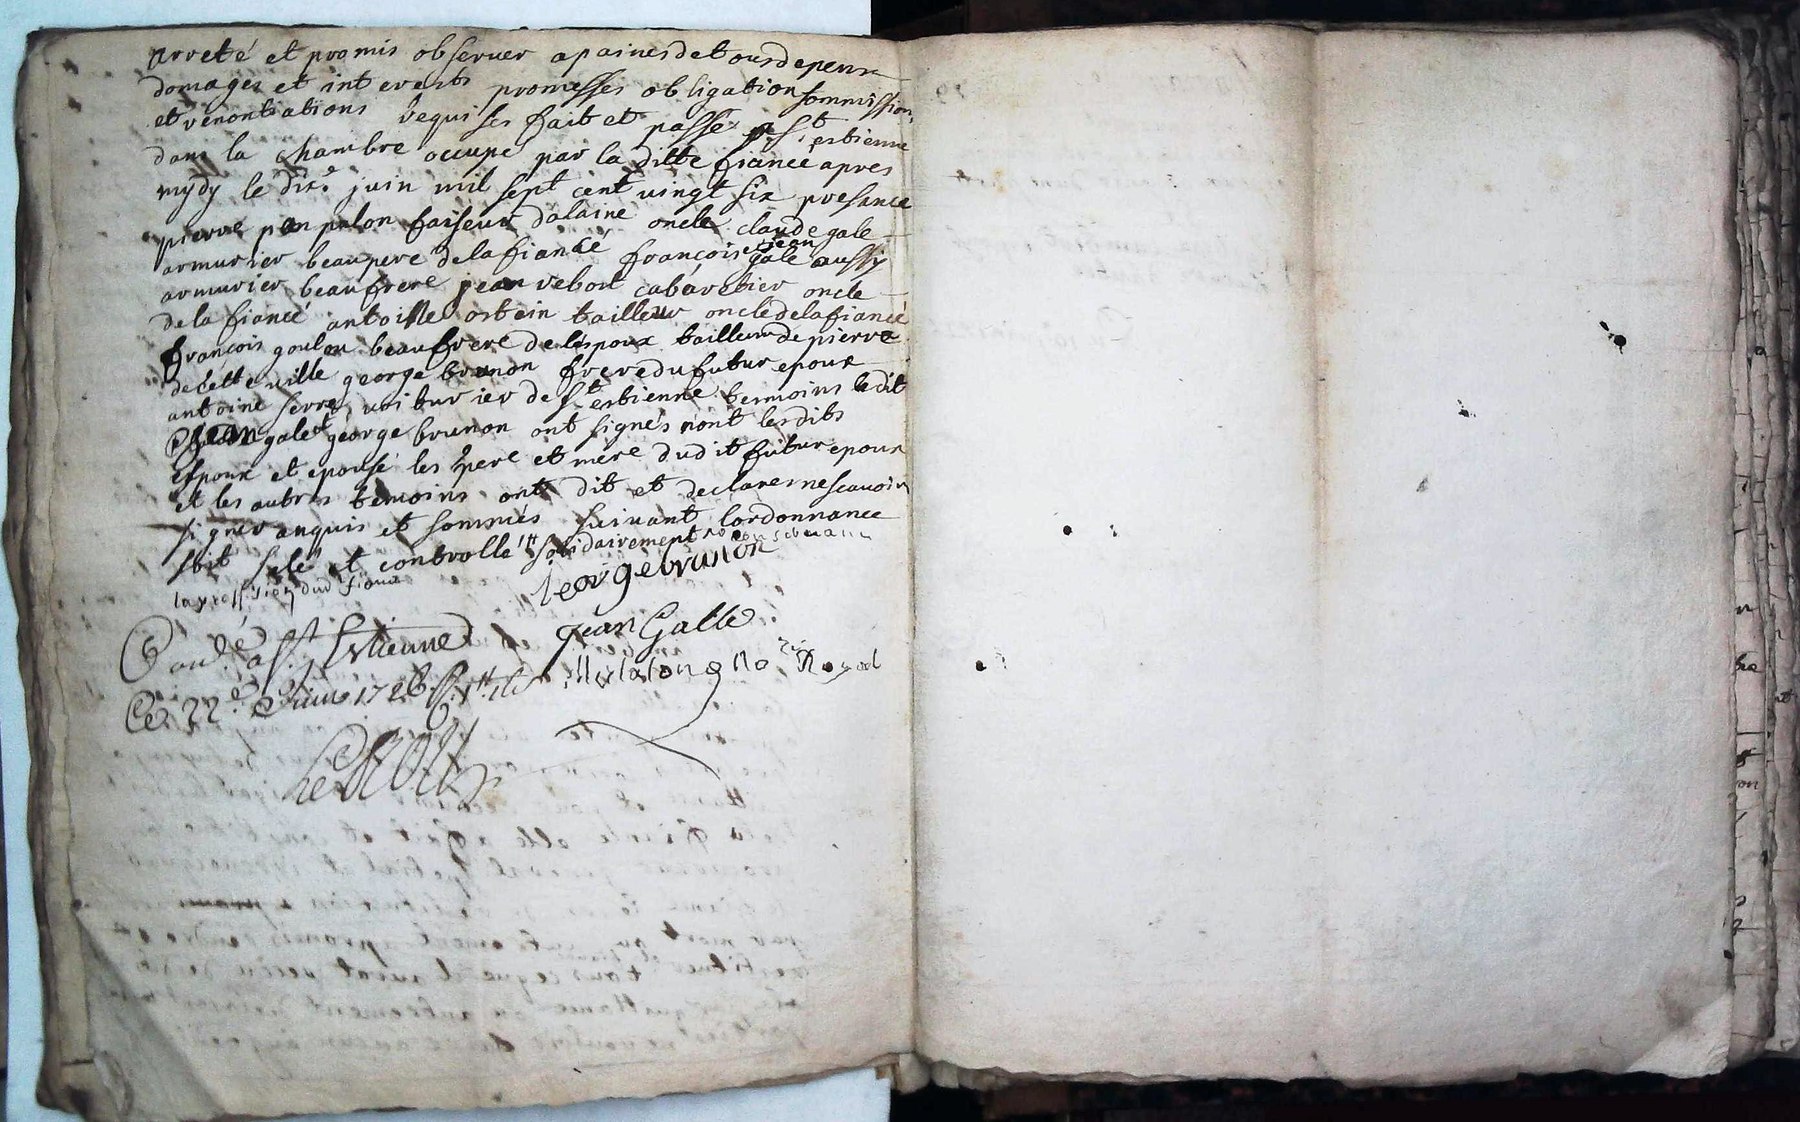 arreté et promis observer a paines de tous depens
domages et interests promesses obligation sommission
et renontiations requises fait et passé a St estienne
dans la chambre occupé par la ditte fiancé apres
mydy le dix.e juin mil sept cent vingt six presance
pierre faiseur dalaine oncle claude gale
armurier beaupere de la fiancé françois et jean gale aussy
armurier beaufrere jean rebort cabaretier oncle
de la fiancé antoine ostein tailleur oncle de la fiancé
françois goulou beaufrere de lespoux tailleur de pierre
de cette ville george brunon frere du futur epoux
antoine serre voiturier de St estienne temoins ledit
jean gale et george brunon ont signés nont lesdits
espoux et epousé les pere et mere dudit futur epoux
et les autres temoins ont dit et declares ne scavoir
signer anquis et sommés suivant lordonnance
soit selé et controllé solidairement
george brunon
jean Galle
a St Estienne
Ce 22e Juin 1726
Royal